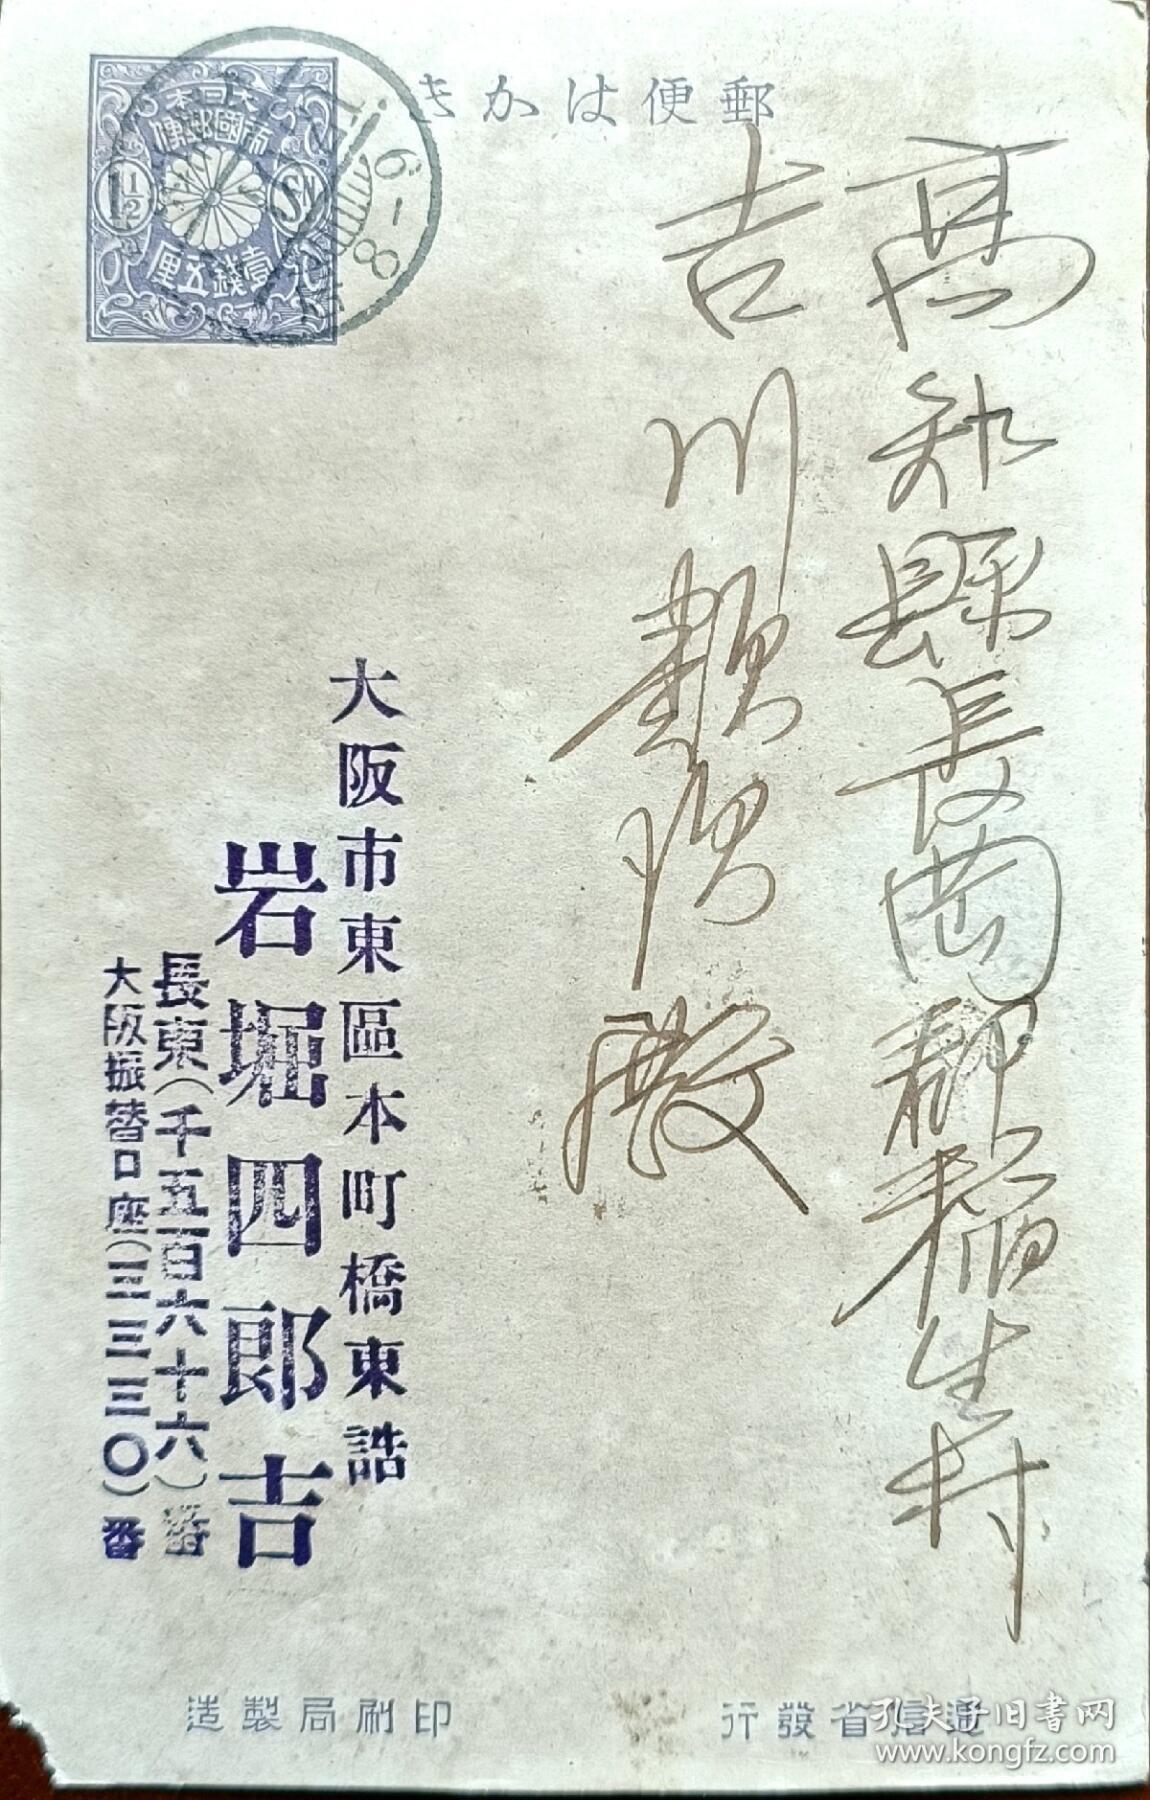 郵便はかき
大日本
帝國郵便
1½
Sn
壹錢五厘
6-8
高知縣長岡郡稲生村
吉川類次殿
大阪市東區本町橋東詰
岩堀四郎吉
長東(千五百六十六)番
大阪振替口座(三三三〇)番
遞信省發行
印刷局製造
孔夫子旧書网
www.kongfz.com